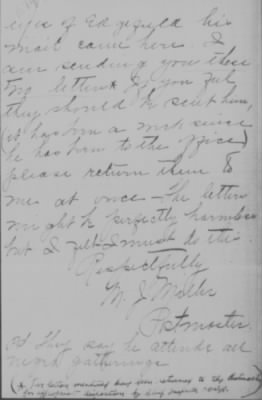 eyes of Edgefield his
mail came here. I
am sending you these
two letters * If you feel
they should be sent him,
(it has been a week since
he has been to the office)
please return them to
me at once — The letters
might be perfectly harmless
but I felt I must do this.
Respectfully
M. J.
Postmaster.
They say he attends all
negro gatherings
(* Two letters mentioned have been returned to the Postmaster
for appropriate disposition by